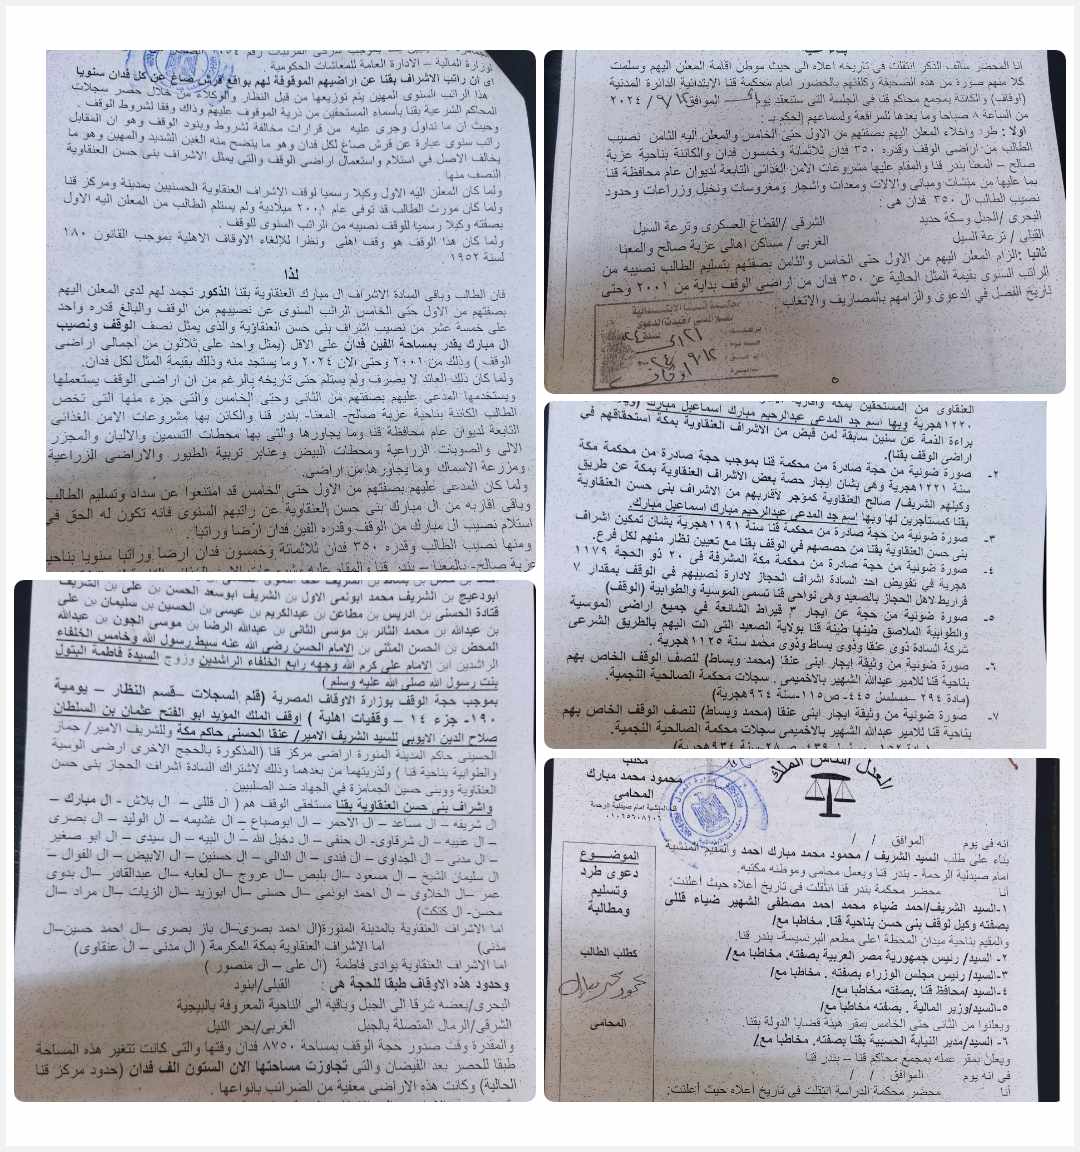 وزارة المالية – الادارة العامة للمعاشات الحكومية
اى ان راتب الاشراف بقنا عن اراضيهم الموقوفة لهم بواقع قرش صاغ عن كل فدان سنويا
هذا الراتب السنوى المهين يتم توزيعها من قبل النظار والوكلاء من خلال حصر سجلات
المحاكم الشرعية بقنا بأسماء المستحقين من ذرية الموقوف عليهم وذاك وفقا لشروط الوقف .
وحيث ان ما تداول وجرى عليه من قرارات مخالفة لشروط وبنود الوقف وهو ان المقابل
راتب سنوى عبارة عن قرش صاغ لكل فدان وهو ما يتضح منه الغبن الشديد والمهين وهو ما
يخالف الاصل فى استلام واستعمال اراضى الوقف والتى يمثل الاشراف بنى حسن العنقاوية
النصف منها
ولما كان المعلن اليه الاول وكيلا رسميا لوقف الاشراف العنقاوية الحسنيين بمدينة ومركز قنا
ولما كان مورث الطالب قد توفى عام ٢٠٠١ ميلادية ولم يستلم الطالب من المعلن اليه الاول
بصفته وكيلا رسميا للوقف نصيبه من الراتب السنوى للوقف .
ولما كان هذا الوقف هو وقف اهلى ونظرا للإلغاء الاوقاف الاهلية بموجب القانون ١٨٠
لسنة ١٩٥٢
لذا
فان الطالب وباقى السادة الاشراف ال مبارك العنقاوية بقنا الذكور تجمد لهم لدى المعلن اليهم
بصفتهم من الاول حتى الخامس الراتب السنوى عن نصيبهم من الوقف والبالغ قدره واحد
على خمسة عشر من نصيب اشراف بنى حسن العنقاؤية والذى يمثل نصف الوقف ونصيب
ال مبارك يقدر بمساحة الفين فدان على الاقل (يمثل واحد على ثلاثون من اجمالى اراضى
الوقف ) وذلك من ٢٠٠١ وحتى الان ٢٠٢٤ وما يستجد منه وذلك بقيمة المثل لكل فدان.
ولما كان ذلك العائد لا يصرف ولم يستلم حتى تاريخه بالرغم من ان اراضى الوقف يستعملها
ويستخدمها المدعى عليهم بصفتهم من الثانى وحتى الخامس والتى جزء منها التى تخص
الطالب الكائنة بناحية عزبة صالح- المعنا- بندر قنا والكائن بها مشروعات الامن الغذائى
التابعة لديوان عام محافظة قنا وما يجاورها والتى بها محطات التسمين والالبان والمجزر
الالى والصوبات الزراعية ومحطات البيض وعنابر تربية الطيور والاراضى الزراعية
ومزرعة الاسماك وما يجاورها من اراضى.
ولما كان المدعى عليهم بصفتهم من الاول حتى الخامس قد امتنعوا عن سداد وتسليم الطالب
وباقى اقاربه من ال مبارك بنى حسن العنقاوية عن راتبهم السنوى فانه تكون له الحق فى
استلام نصيب ال مبارك من الوقف وقدره الفين فدان ارضا وراتبا .
ومنها نصيب الطالب وقدره ٣٥٠ فدان ثلاثمائة وخمسون فدان ارضا وراتبا سنويا بناحية
انا المحضر سالف الذكر انتقلت فى تاريخه اعلاه الى حيث موطن اقامة المعلن اليهم وسلمت
كلا منهم صورة من هذه الصحيفة وكلفتهم بالحضور امام محكمة قنا الابتدائية الدائرة المدنية
(اوقاف) والكائنة بمجمع محاكم قنا فى الجلسة التى ستنعقد يوم الموافق ١٢ / ٩ / ٢٠٢٤
من الساعة ٨ صباحا وما بعدها للمرافعة ولسماعهم الحكم بـ :
اولا : طرد واخلاء المعلن اليهم بصفتهم من الاول حتى الخامس والمعلن اليه الثامن نصيب
الطالب من اراضى الوقف وقدره ٣٥٠ فدان ثلاثمائة وخمسون فدان والكائنة بناحية عزبة
صالح – المعنا بندر قنا والمقام عليها مشروعات الامن الغذائى التابعة لديوان عام محافظة قنا
بما عليها من منشات ومبانى والالات ومعدات واشجار ومغروسات ونخيل وزراعات وحدود
نصيب الطالب ال ٣٥٠ فدان هى :
البحرى /الجبل وسكة حديد الشرقى /القطاع العسكرى وترعة السيل
القبلى / ترعة السيل الغربى / مساكن اهالى عزبة صالح والمعنا
ثانيا :الزام المعلن اليهم من الاول حتى الخامس والثامن بصفتهم بتسليم الطالب نصيبه من
الراتب السنوى بقيمة المثل الحالية عن ٣٥٠ فدان من اراضى الوقف بداية من ٢٠٠١ وحتى
تاريخ الفصل فى الدعوى والزامهم بالمصاريف والاتعاب
١٢٢٠هجرية وبها اسم جد المدعى عبدالرحيم مبارك اسماعيل مبارك
براءة الذمة عن سنين سابقة لمن قبض من الاشراف العنقاوية بمكة استحقاقهم فى
اراضى الوقف بقنا).
٢- صورة ضونية من حجة صادرة من محكمة قنا بموجب حجة صادرة من محكمة مكة
سنة ١٢٢١هجرية وهى بشان ايجار حصة بعض الاشراف العنقاوية بمكة عن طريق
وكيلهم الشريف/ صالح العنقاوية كمؤجر لأقاربهم من الاشراف بنى حسن العنقاوية
بقنا كمستأجرين لها وبها اسم جد المدعى عبدالرحيم مبارك اسماعيل مبارك.
٣- صورة ضونية من حجة صادرة من محكمة قنا سنة ١١٩١هجرية بشان تمكين اشراف
بنى حسن العنقاوية بقنا من حصصهم فى الوقف بقنا مع تعيين نظار منهم لكل فرع.
٤- صورة ضونية من حجة صادرة من محكمة مكة المشرفة فى ٢٠ ذو الحجة ١١٧٩
هجرية في تفويض احد السادة اشراف الحجاز لادارة نصيبهم فى الوقف بمقدار ٧
قراريط لاهل الحجاز بالصعيد وهى نواحى قنا تسمى الموسية والطوابية (الوقف)
٥- صورة ضونية من حجة عن ايجار ٣ قيراط الشائعة في جميع اراضى الموسية
والطوابية الملاصق طينها طينة قنا بولاية الصعيد التى الت اليهم بالطريق الشرعى
شركة السادة ذوى عنقا وذوى بساط وذوى محمد سنة ١١٢٥هجرية
٦- صورة ضونية من وثيقة ايجار ابنى عنقا (محمد وبساط) لنصف الوقف الخاص بهم
بناحية قنا للامير عبدالله الشهير بالاخميمى . سجلات محكمة الصالحية النجمية.
(مادة ٢٩٤ –مسلسل ٤٤٥- ص١١٥–سنة ٩٦٤هجرية)
٧- صورة ضونية من وثيقة ايجار ابنى عنقا (محمد وبساط) لنصف الوقف الخاص بهم
بناحية قنا للامير عبدالله الشهير بالاخميمى سجلات محكمة الصالحية النجمية.
ابودعيج بن الشريف محمد ابونمى الاول بن الشريف ابوسعد الحسن بن على بن الشريف
قتادة الحسنى بن ادريس بن مطاعن بن عبدالكريم بن عيسى بن الحسين بن سليمان بن على
بن عبدالله بن محمد الثائر بن موسى الثانى بن عبدالله الرضا بن موسى الجون بن عبدالله
المحض بن الحسن المثنى بن الامام الحسن رضى الله عنه سبط رسول الله وخامس الخلفاء
الراشدين ابن الامام على كرم الله وجهه رابع الخلفاء الراشدين وزوج السيدة فاطمة البتول
بنت رسول الله صلى الله عليه وسلم )
بموجب حجة الوقف بوزارة الاوقاف المصرية (قلم السجلات –قسم النظار – يومية
١٩٠- جزء ١٤ – وقفيات اهلية ) اوقف الملك المؤيد ابو الفتح عثمان بن السلطان
صلاح الدين الايوبى للسيد الشريف الامير/ عنقا الحسنى حاكم مكة وللشريف الامير/ جماز
الحسينى حاكم المدينة المنورة اراضى مركز قنا (المذكورة بالحجج الاخرى ارضى الوسية
والطوابية بناحية قنا ) ولذريتهما من بعدهما وذلك لاشتراك السادة اشراف الحجاز بنى حسن
العنقاوية وبنى حسين الجمامزة في الجهاد ضد الصليبين .
واشراف بنى حسن العنقاوية بقنا مستحقى الوقف هم ( ال قللى – ال بلاش - ال مبارك –
ال شريفه – ال مساعد – ال الاحمر – ال ابوصباع – ال غشيمه – ال الوليد – ال بصرى
– ال عنيبه – ال شرقاوى- ال حنفى – ال دخيل الله – ال البيه – ال سيدى – ال ابو صغير
– ال مدنى – ال الجداوى – ال فندى – ال الدالى – ال حسنين – ال الابيض – ال القوال –
ال سليمان الشيخ – ال مسعود –ال بليص –ال عروج –ال لعابه –ال عبدالقادر –ال بدوى
عمر –ال الخلاوى – ال احمد ابونمى –ال حسنى –ال ابوزيد –ال الزيات –ال مراد –ال
محسن- ال كتكت)
اما الاشراف العنقاوية بالمدينة المنورة(ال احمد بصرى–ال باز بصرى –ال احمد حسين–ال
مدنى) اما الاشراف العنقاوية بمكة المكرمة ( ال مدنى – ال عنقاوى)
اما الاشراف العنقاوية بوادى فاطمة (ال على – ال منصور )
وحدود هذه الاوقاف طبقا للحجة هى : القبلى/ابنود
البحرى/بعضه شرقا الى الجبل وباقيه الى الناحية المعروفة بالبيجية
الشرقى/الرمال المتصلة بالجبل الغربى/بحر النيل
والمقدرة وقت صدور حجة الوقف بمساحة ٨٧٥٠ فدان وقتها والتى كانت تتغير هذه المساحة
طبقا للحصر بعد الفيضان والتى تجاوزت مساحتها الان الستون الف فدان (حدود مركز قنا
الحالية) وكانت هذه الاراضى معفية من الضرائب بانواعها .
مكتب
محمود محمد مبارك
المحامى
العدل اساس الملك
انه فى يوم الموافق / /
بناء على طلب السيد الشريف / محمود محمد مبارك احمد والمقيم المنشية
امام صيدلية الرحمة - بندر قنا ويعمل محامى وموطنه مكتبه.
أنا محضر محكمة بندر قنا انتقلت فى تاريخ أعلاه حيث أعلنت:
١-السيد الشريف/احمد ضياء محمد احمد مصطفى الشهير ضياء قللى
بصفته وكيل لوقف بنى حسن بناحية قنا. مخاطبا مع/
والمقيم بناحية ميدان المحطة اعلى مطعم البرنسيسة- بندر قنا.
٢- السيد/ رئيس جمهورية مصر العربية بصفته. مخاطبا مع/
٣-السيد/ رئيس مجلس الوزراء بصفته . مخاطبا مع/
٤-السيد /محافظ قنا .بصفته مخاطبا مع/
٥-السيد/وزير المالية . بصفته مخاطبا مع/
ويعلنوا من الثانى حتى الخامس بمقر هيئة قضايا الدولة بقنا.
٦- السيد/مدير النيابة الحسبية بقنا بصفته. مخاطبا مع/
ويعلن بمقر عمله بمجمع محاكم قنا – بندر قنا
فى انه يوم الموافق / /
أنا محضر محكمة الدراسة انتقلت فى تاريخ أعلاه حيث أعلنت:
الموضـــوع
دعوى طرد
وتسليم
ومطالبة
كطلب الطالب
المحامى